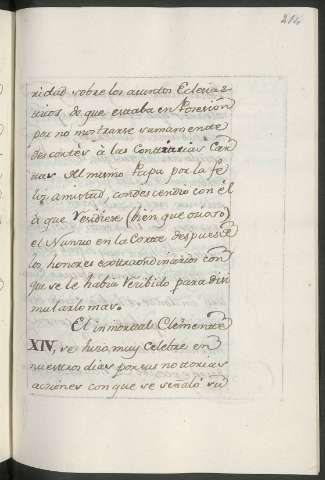 204
ridad sobre los asuntos Eclesias-
ticos, de que estaba en Posesion
por no mostrarse sumamente
descortès à las Contrarias Car-
tas del mismo Papa por la fe-
liz amistad, condescendio con èl
à que Residiese (bien que ocioso)
el Nuncio en la Corte despues de
los honores extraordinarios con
que se le habia Recibido para disi-
mularlo mas.
El inmortal Clemente
XIV, se hizo muy Celebre en
nuestros dias por sus notorias
acciones con que se señalò su